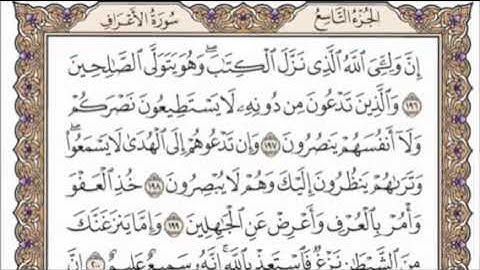 الجُزْءُ التَّاسِعُ سُورَةُ الأَعْرَافِ
إِنَّ وَلِـِّۧيَ ٱللَّهُ ٱلَّذِي نَزَّلَ ٱلْكِتَٰبَۖ وَهُوَ يَتَوَلَّى ٱلصَّٰلِحِينَ
١٩٦ وَٱلَّذِينَ تَدْعُونَ مِن دُونِهِۦ لَا يَسْتَطِيعُونَ نَصْرَكُمْ
وَلَآ أَنفُسَهُمْ يَنصُرُونَ ١٩٧ وَإِن تَدْعُوهُمْ إِلَى ٱلْهُدَىٰ لَا يَسْمَعُوا۟ۖ
وَتَرَىٰهُمْ يَنظُرُونَ إِلَيْكَ وَهُمْ لَا يُبْصِرُونَ ١٩٨ خُذِ ٱلْعَفْوَ
وَأْمُرْ بِٱلْعُرْفِ وَأَعْرِضْ عَنِ ٱلْجَٰهِلِينَ ١٩٩ وَإِمَّا يَنزَغَنَّكَ
مِنَ ٱلشَّيْطَٰنِ نَزْغٌ فَٱسْتَعِذْ بِٱللَّهِۚ إِنَّهُۥ سَمِيعٌ عَلِيمٌ ٢٠٠ إِنَّ